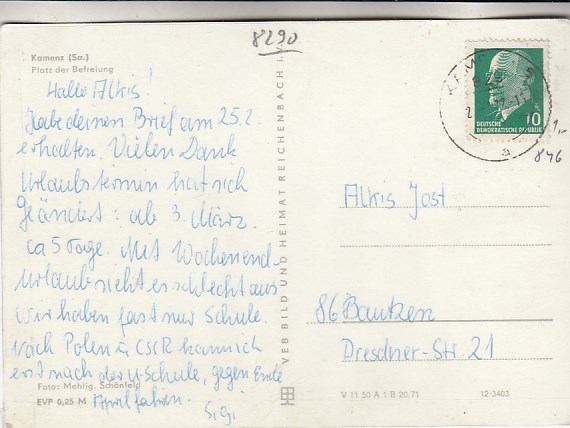 8290
Kamenz (Sa.)
Platz der Befreiung
Hallo Alkis!
Habe deinen Brief am 25.2.
erhalten. Vielen Dank
Urlaubstermin hat sich
geändert: ab 3. März
ca 5 Tage. Mit Wochenend-
urlaub sieht es schlecht aus
wir haben fast nur Schule.
Nach Polen u. CSSR kann ich
erst nach der U-Schule, gegen Ende
April fahren.
Sigi
Foto: Mehlig, Schönfeld
EVP 0,25 M
VEB BILD UND HEIMAT REICHENBACH I.V.
10
DEUTSCHE
DEMOKRATISCHE REPUBLIK
1,-
846
Alkis Jost
86 Bautzen
Dresdner-Str. 21
V 11 50 A 1 B 20/71
12-3403